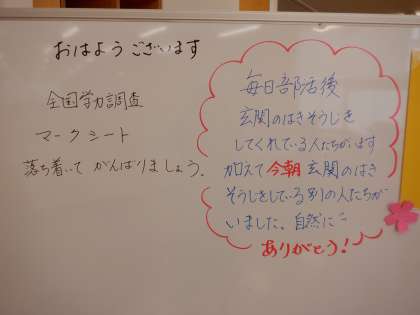 おはようございます
全国学力調査
マークシート
落ち着いて がんばりましょう。
毎日部活後
玄関のはきそうじを
してくれている人たちがいます
加えて今朝玄関のはき
そうじをしている別の人たちが
いました。自然に
ありがとう!